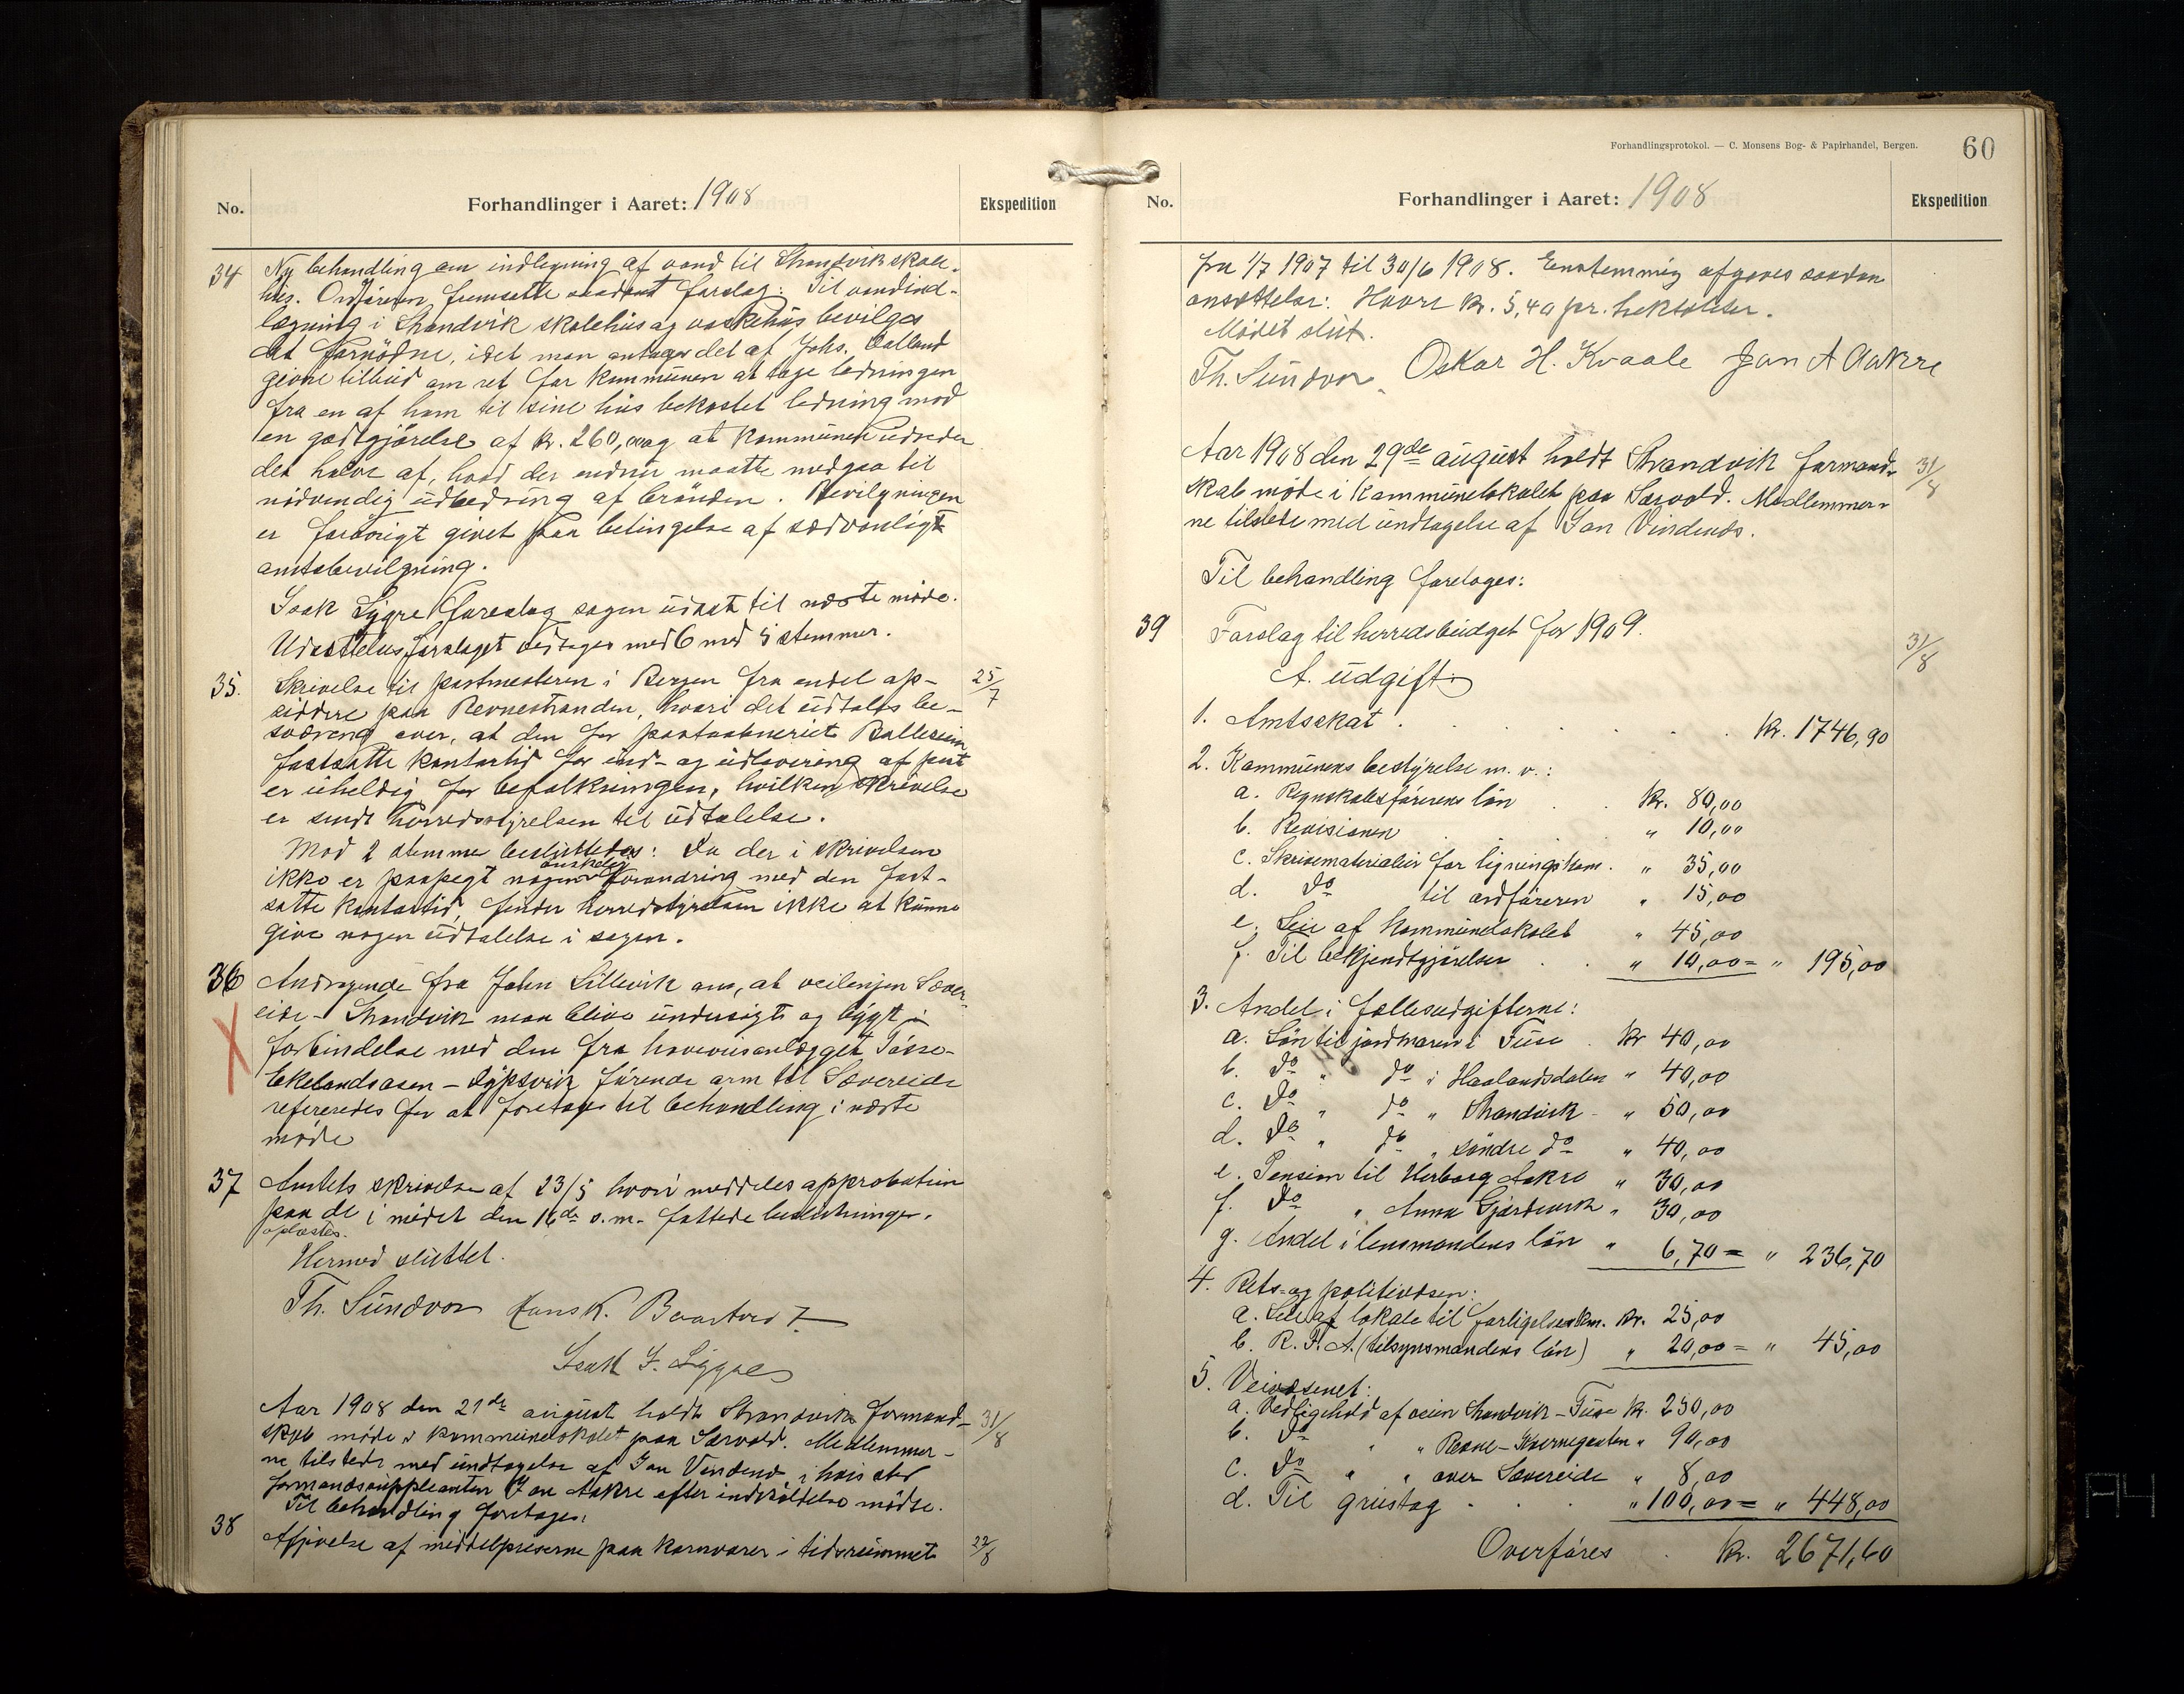 No.
Forhandlinger i Aaret: 1908
Ekspedition
34 Ny behandling om indlegning af vand til Strandvik skole-
hus. Ordføreren fremsatte saadant forslag: Til vandind-
lægning i Strandvik skolehus og vaskehus bevilges
det fornødne, idet man antager det af Johs. Dalland
givne tilbud om ret for kommunen at tage ledningen
fra en af ham til sine hus bekostet ledning mod
en godtgjørelse af kr. 260,00 og at kommunen udreder
det halve af, hvad der endnu maatte medgaa til
nødvendig udbedring af brønden. Bevilgningen
er forøvrigt givet paa betingelse af sædvanligt
amtsbevilgning.
Isak Lygre foreslog sagen udsat til næste møde.
Udsættelsesforslaget vedtages med 6 mod 5 stemmer.
35. Skrivelse til postmesteren i Bergen fra endel op- 25/7
siddere paa Revnestranden, hvori det udtales be-
sværing over, at den for postaabneriet Ballesheim
fastsatte kontortid for ind- og udlevering af post
er uheldig for befolkningen, hvilken skrivelse
er sendt herredsstyrelsen til udtalelse.
Mod 2 stemme besluttedes: Da der i skrivelsen
ikke er paapegt nogen ønskelig forandring med den fast-
satte kontortid, finder herredsstyrelsen ikke at kunne
give nogen udtalelse i sagen.
36 Andragende fra John Lillevik om, at veilinjen Sæver-
eide - Strandvik maa blive undersøgt og bygt i
forbindelse med den fra hoveveisanlægget Tøsse-
Ekelandsosen - Dypsvik førende arm til Sævereide
refereredes for at foretages til behandling i næste
møde
37 Amtets skrivelse af 23/5 hvori meddeles approbation
paa de i mødet den 16de s.m. fattede beslutninger.
oplæstes.
Hermed sluttet.
Th. Sundvor Hans K. Baartvedt
Isak J. Lygre
Aar 1908 den 21de august holdt Strandvik formand- 31/8
skab møde i kommunelokalet paa Særvold. Medlemmer-
ne tilstede med undtagelse af Jan Vindenes, i hvis sted
formandssuppleanten Jan Aakre efter indkaldelse mødte.
Til behandling foretages:
38 Afgivelse af middelpriserne paa kornvarer i tidsrummet 22/8
Forhandlingsprotokol. — C. Monsens Bog- & Papirhandel, Bergen.
60
No.
Forhandlinger i Aaret: 1908
Ekspedition
fra 1/7 1907 til 30/6 1908. Enstemmig afgaves saadan
ansættelse: Havre kr. 5,40 pr. hektoliter.
Mødet slut.
Th. Sundvor Oskar H. Kvaale Jan A Aakre
Aar 1908 den 29de august holdt Strandvik formand- 31/8
skab møde i kommunelokalet paa Særvold. Medlemmer-
ne tilstede med undtagelse af Jan Vindenes.
Til behandling foretages:
39 Forslag til herredsbudget for 1909. 31/8
A. Udgift.
1. Amtsskat . . . . . . Kr. 1746,90
2. Kommunens bestyrelse m. v.:
a. Regnskabsførerens løn . . Kr. 80,00
b. Revisionen . . " 10,00
c. Skrivematerialier for ligningskom. " 35,00
d. do til ordføreren " 15,00
e. Leie af kommunelokalet " 45,00
f. Til bekjendtgjørelser . . " 10,00 = " 195,00
3. Andel i fællesudgifterne:
a. Løn til jordmoren i Fuse . Kr 40,00
b. do " do i Haalandsdalen " 40,00
c. do " do " Strandvik - " 50,00
d. do " do " søndre do " 40,00
e. Pension til Herborg Aakre " 30,00
f. do " Anna Gjærdevik " 30,00
g. Andel i lensmandens løn " 6,70 = " 236,70
4. Rets- og politivæsen:
a. Leie af lokale til forligelseskom. Kr. 25,00
b. R. F. A. (tilsynsmandens løn) " 20,00 = " 45,00
5. Veivæsenet:
a. Vedligehold af veien Strandvik - Fuse Kr. 250,00
b. do " " Revne - Kvernegaten " 90,00
c. do " " over Sævereide " 8,00
d. Til grustag . . . " 100,00 = " 448,00
Overføres . Kr. 2671,60